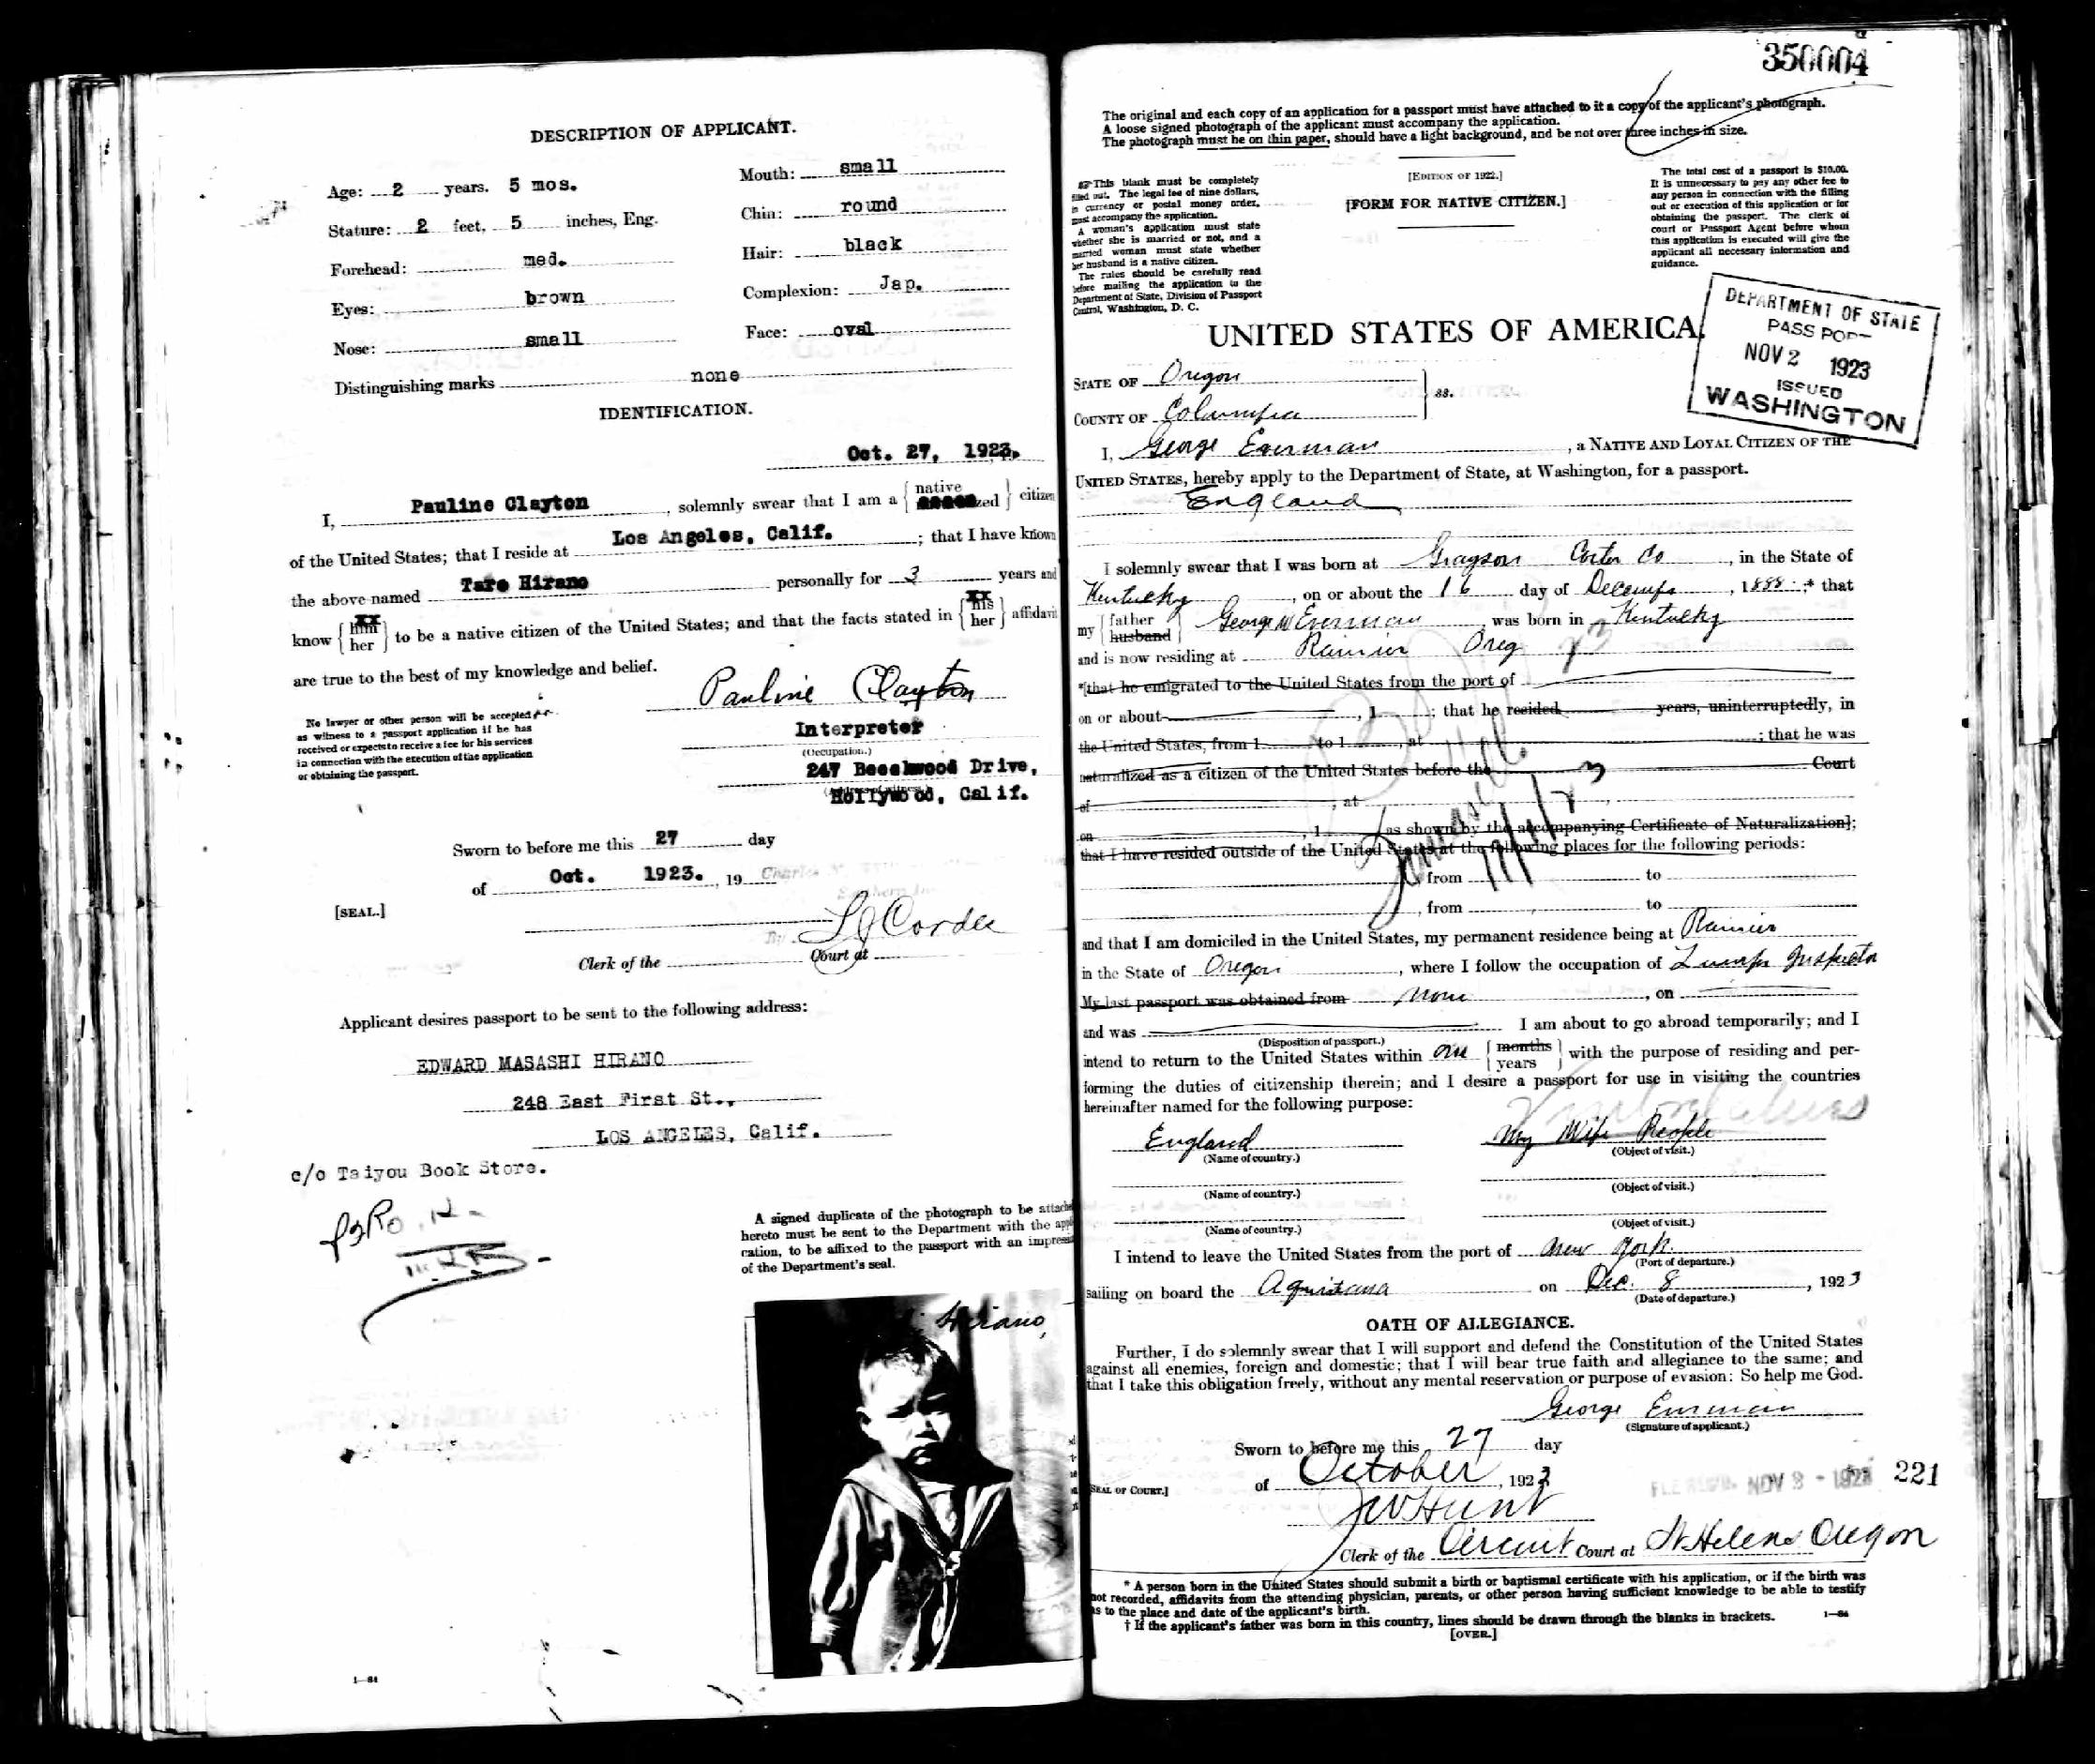 DESCRIPTION OF APPLICANT.
Age: 2 years. 5 mos.
Mouth: small
Stature: 2 feet, 5 inches, Eng.
Chin: round
Forehead: med.
Hair: black
Eyes: brown
Complexion: Jap.
Nose: small
Face: oval
Distinguishing marks none
IDENTIFICATION.
Oct. 27, 1923.
I, Pauline Clayton, solemnly swear that I am a { native zed } citizen
of the United States; that I reside at Los Angeles, Calif.; that I have known
the above-named Taro Hirano personally for 3 years and
know { him her } to be a native citizen of the United States; and that the facts stated in { his her } affidavit
are true to the best of my knowledge and belief.
Pauline Clayton
No lawyer or other person will be accepted
as witness to a passport application if he has
received or expects to receive a fee for his services
in connection with the execution of the application
or obtaining the passport.
Interpreter
(Occupation.)
247 Beechwood Drive,
(Address of witness.)
Hollywood, Calif.
Sworn to before me this 27 day
of Oct. 1923., 19
[SEAL.]
L J Cordel
Clerk of the Court at
Applicant desires passport to be sent to the following address:
EDWARD MASASHI HIRANO
248 East First St.,
LOS ANGELES, Calif.
c/o Taiyou Book Store.
A signed duplicate of the photograph to be attached
hereto must be sent to the Department with the appli
cation, to be affixed to the passport with an impression
of the Department's seal.
Hirano,
1—84
350004
The original and each copy of an application for a passport must have attached to it a copy of the applicant's photograph.
A loose signed photograph of the applicant must accompany the application.
The photograph must be on thin paper, should have a light background, and be not over three inches in size.
This blank must be completely
filled out. The legal fee of nine dollars,
in currency or postal money order,
must accompany the application.
A woman's application must state
whether she is married or not, and a
married woman must state whether
her husband is a native citizen.
The rules should be carefully read
before mailing the application to the
Department of State, Division of Passport
Control, Washington, D. C.
[EDITION OF 1922.]
[FORM FOR NATIVE CITIZEN.]
The total cost of a passport is $10.00.
It is unnecessary to pay any other fee to
any person in connection with the filling
out or execution of this application or for
obtaining the passport. The clerk of
court or Passport Agent before whom
this application is executed will give the
applicant all necessary information and
guidance.
DEPARTMENT OF STATE
PASSPORT
NOV 2 1923
ISSUED
WASHINGTON
UNITED STATES OF AMERICA.
STATE OF Oregon
COUNTY OF Columbia
ss.
I, George Everman, a NATIVE AND LOYAL CITIZEN OF THE
UNITED STATES, hereby apply to the Department of State, at Washington, for a passport.
England
I solemnly swear that I was born at Grayson Carter Co, in the State of
Kentucky, on or about the 16 day of December, 1888; * that
my { father husband } George W Everman, was born in Kentucky
and is now residing at Rainier Oreg
*[that he emigrated to the United States from the port of
on or about, 1; that he resided years, uninterruptedly, in
the United States, from 1 to 1, at; that he was
naturalized as a citizen of the United States before the Court
of, at,
on, 1 as shown by the accompanying Certificate of Naturalization];
that I have resided outside of the United States at the following places for the following periods:
, from to
, from to
and that I am domiciled in the United States, my permanent residence being at Rainier
in the State of Oregon, where I follow the occupation of Lumber Inspector
My last passport was obtained from None, on
and was I am about to go abroad temporarily; and I
(Disposition of passport.)
intend to return to the United States within one { months years } with the purpose of residing and per-
forming the duties of citizenship therein; and I desire a passport for use in visiting the countries
hereinafter named for the following purpose:
England My Wife People
(Name of country.) (Object of visit.)
(Name of country.) (Object of visit.)
(Name of country.) (Object of visit.)
I intend to leave the United States from the port of New York.
(Port of departure.)
sailing on board the Aquitana on Dec. 8, 1923
(Date of departure.)
OATH OF ALLEGIANCE.
Further, I do solemnly swear that I will support and defend the Constitution of the United States
against all enemies, foreign and domestic; that I will bear true faith and allegiance to the same; and
that I take this obligation freely, without any mental reservation or purpose of evasion: So help me God.
George Everman
(Signature of applicant.)
Sworn to before me this 27 day
of October, 1923
[SEAL OF COURT.]
NOV 3 - 1923
221
J W Hunt
Clerk of the Circuit Court at St Helens Oregon
* A person born in the United States should submit a birth or baptismal certificate with his application, or if the birth was
not recorded, affidavits from the attending physician, parents, or other person having sufficient knowledge to be able to testify
as to the place and date of the applicant's birth.
† If the applicant's father was born in this country, lines should be drawn through the blanks in brackets.
1—84
[OVER.]